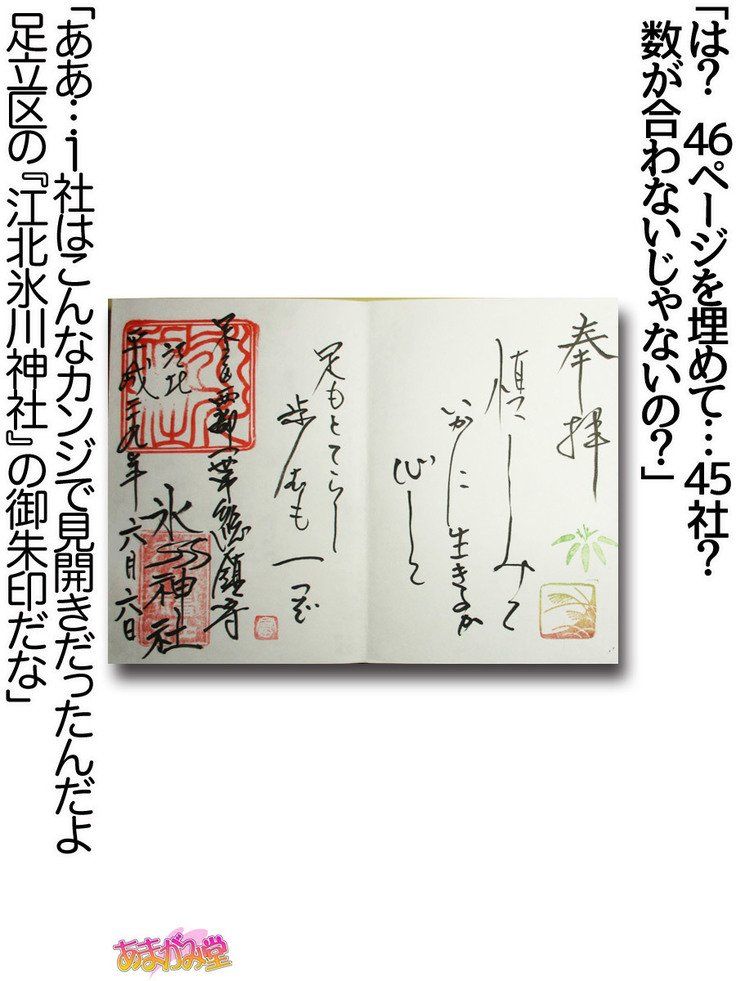 「は？　46ページを埋めて…45社？
数が合わないじゃないの？」
奉拝
慎しみて
いかに生きるか
心して
足もとてらし
歩むも一つぞ
足立西部一帯総鎮守
江北
氷川神社
平成二九年六月六日
「ああ…i社はこんなカンジで見開きだったんだよ
足立区の『江北氷川神社』の御朱印だな」
あまがみ堂